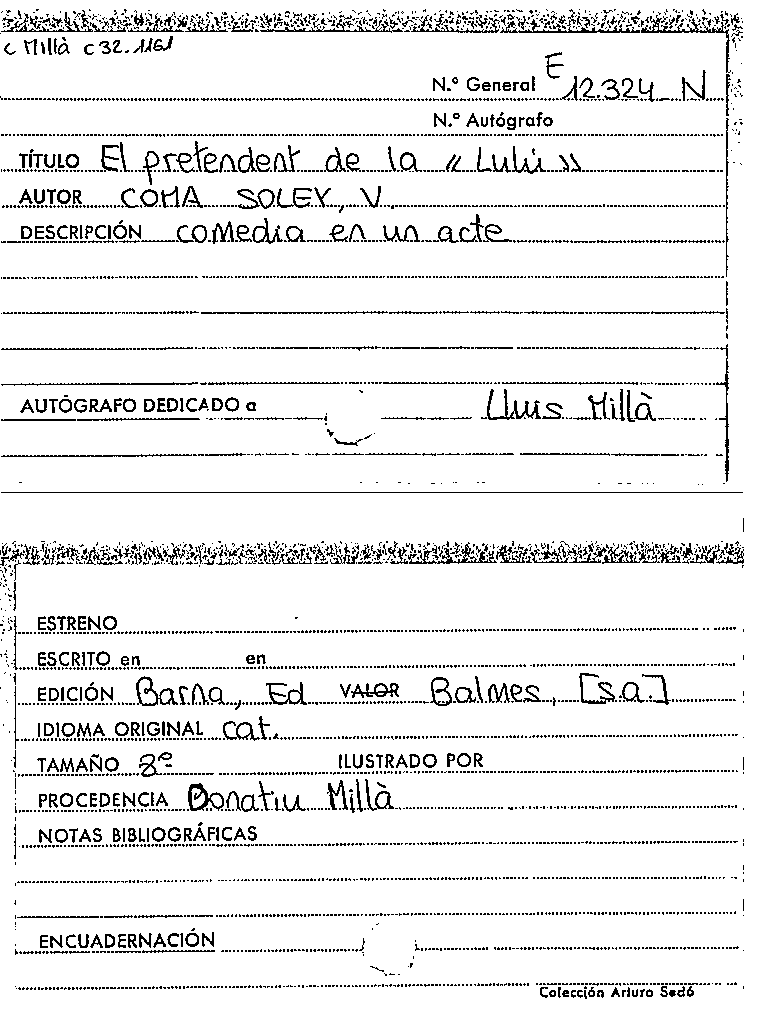 C Millà C 32.1161
N.º General E 12.324 N
N.º Autógrafo
TÍTULO El pretendent de la « Lulú »
AUTOR COMA SOLEY, V.
DESCRIPCIÓN comedia en un acte
AUTÓGRAFO DEDICADO a Lluis Millà
ESTRENO
ESCRITO en en
EDICIÓN Barna, Ed VALOR Balmes, [s.a.]
IDIOMA ORIGINAL cat.
TAMAÑO 8º ILUSTRADO POR
PROCEDENCIA Donatiu Millà
NOTAS BIBLIOGRÁFICAS
ENCUADERNACIÓN
Colección Arturo Sedó